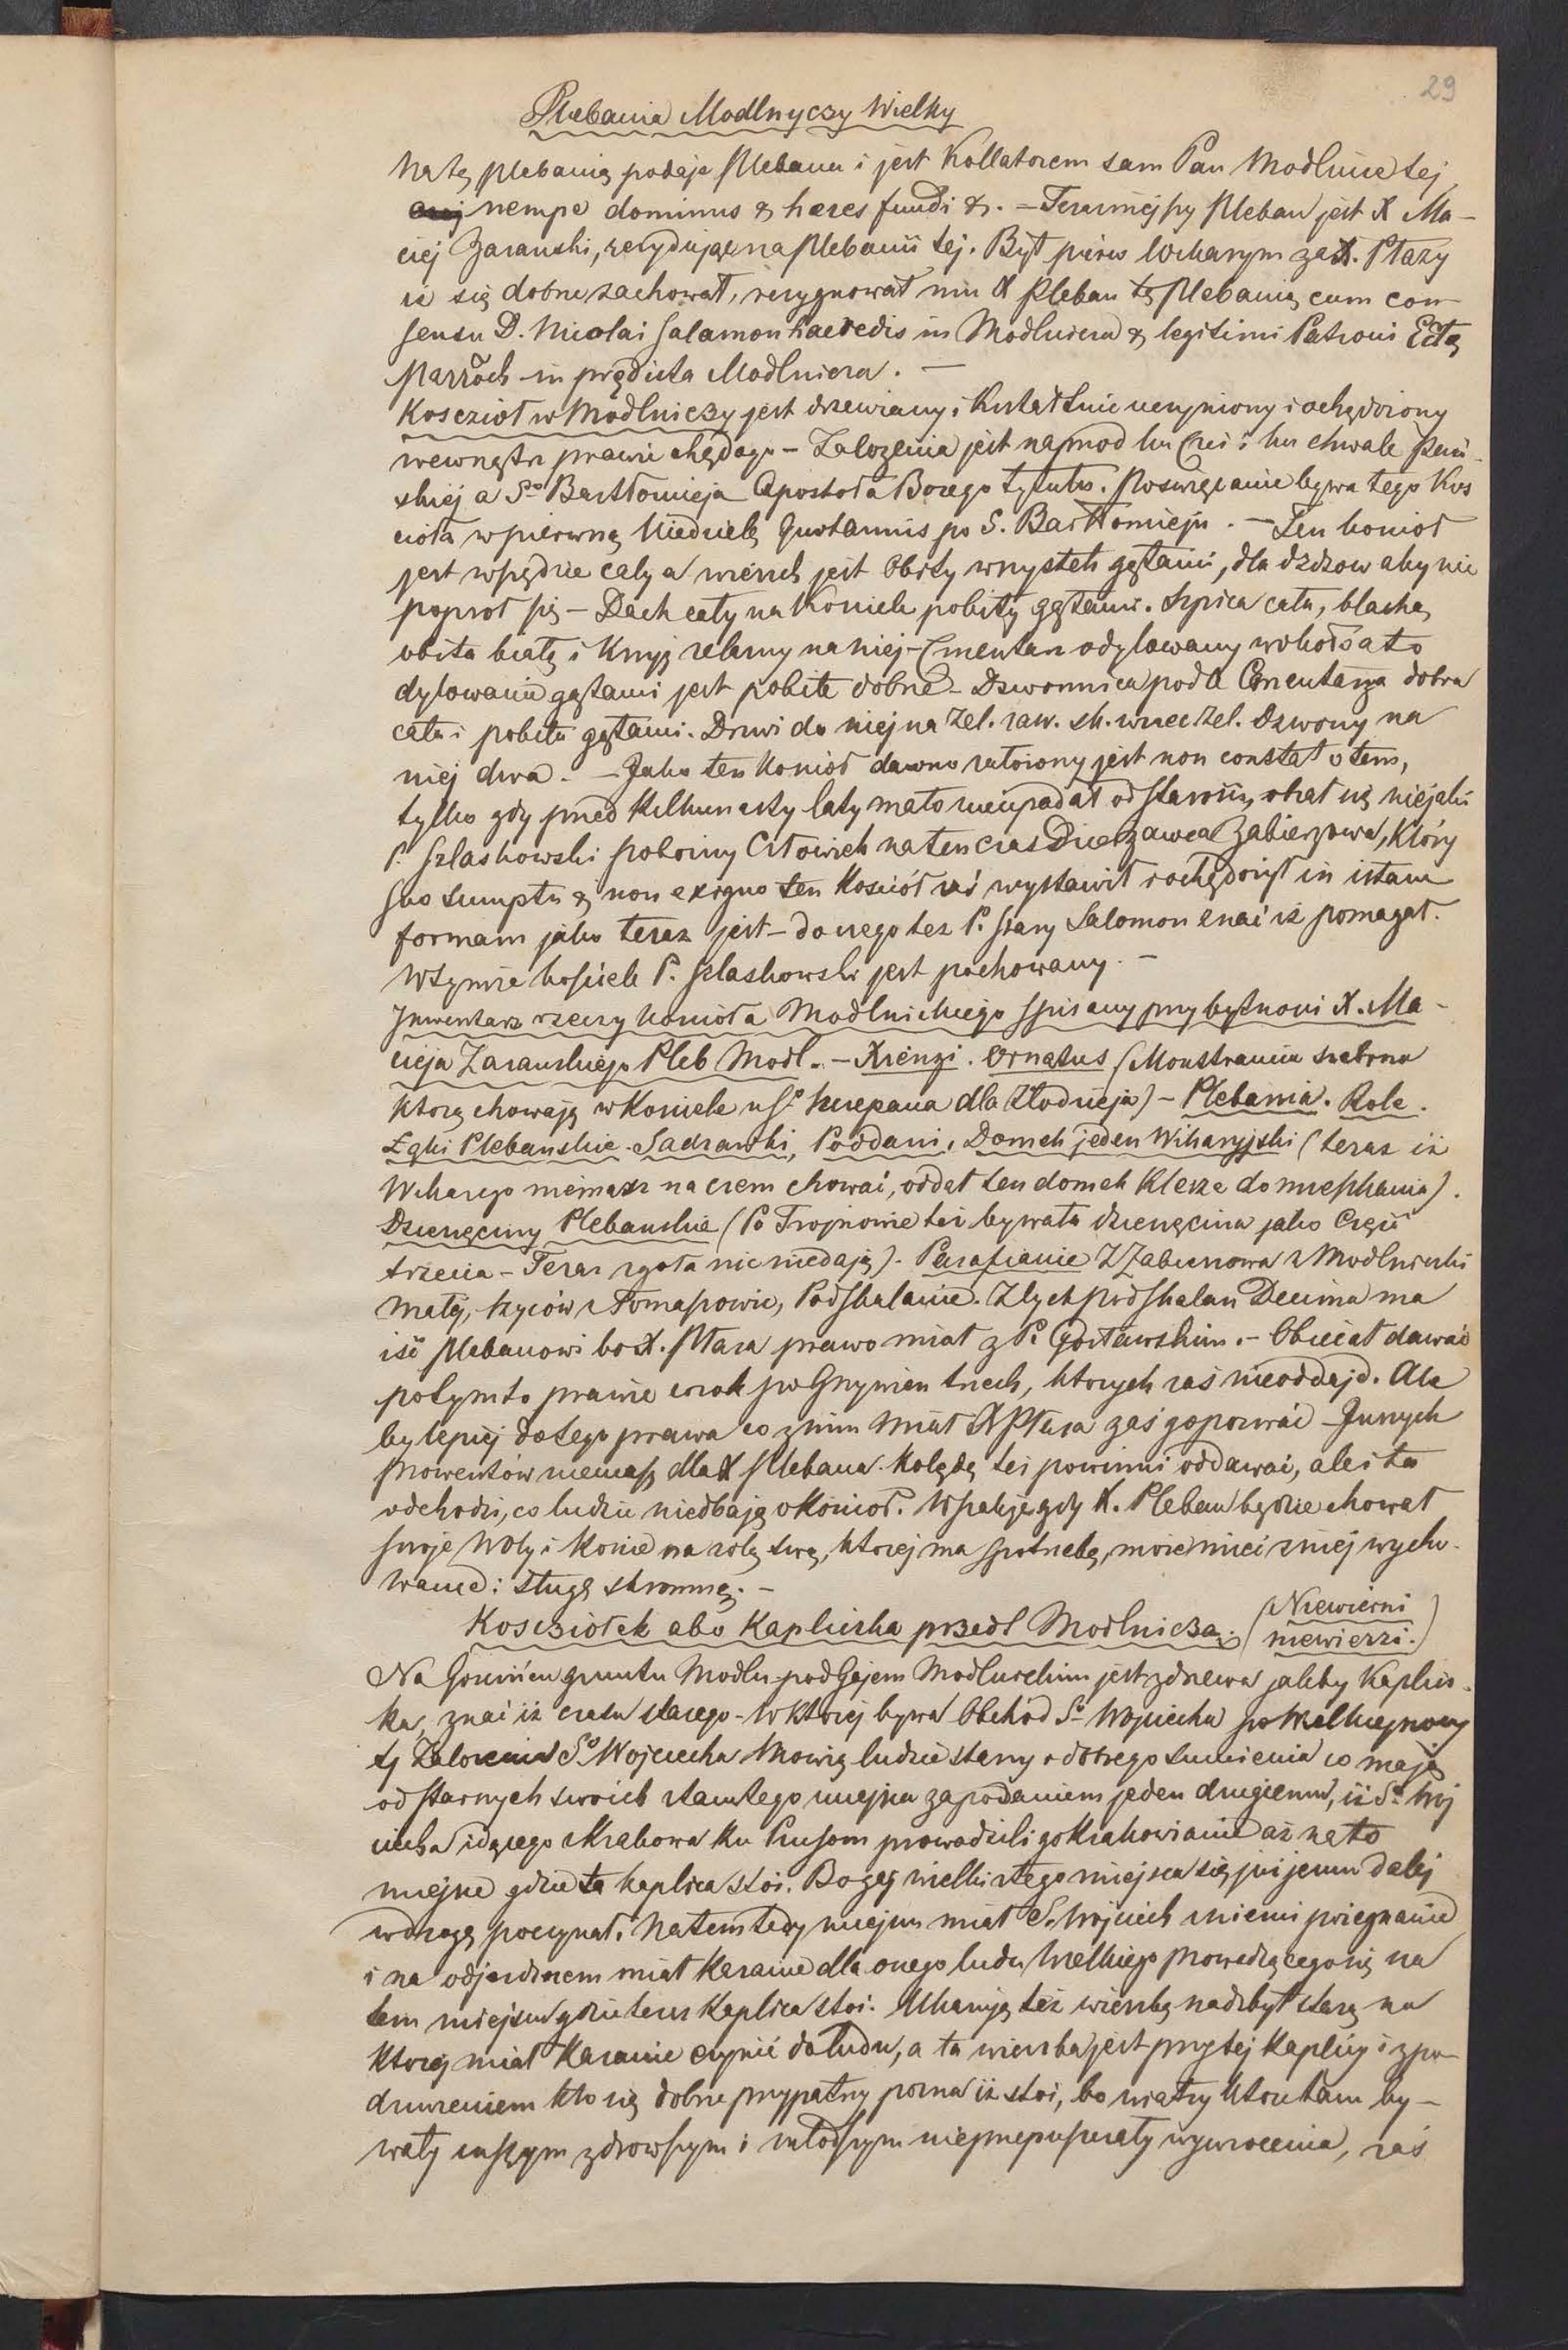 29
Plebania Modlnyczy Wielky
Na tę plebanią podaje Plebana i jest Kollatorem sam Pan Modlnice tej
nempe dominus & haeres fundi &. – Teraźniejszy Pleban jest X Ma-
ciej Zaranski, rezydując na plebanii tej. Był pirwej Wikarym za X. Ptazy
iż się dobrze zachował, rezygnował mu X Pleban tę plebanią cum con-
sensu D. Nicolai Salamon haeredis in Modlnicza & legitimi Patroni Ectę
Parroch in prędicta Modlnicza. –
Koscziół w Modlniczy jest drzewiany, i kształtnie uczyniony i ochędożony
wewnątrz prawie chędogo – Założenia jest naprzod ku Czci i ku chwale Pańs
skiej a Sº Bartłomieja Apostoła Bożego tytułu. Poswięcanie bywa tego Kos
cioła w pierwszą Niedzielę Quotannis po S. Bartłomieju. – Ten kosciół
jest wszędzie cały a wierzch jest obity wszystek gątami, dla dżdżow aby nie
poproł się – Dach cały na Kosciele pobity gątami. Szpica cała, blachą
obita białą i Krzyż żelazny na niej – Cmentarz odylowany wokoło a to
dylowanie gątami jest pobite dobrze – Dzwonnica podle Cmentarza dobra
cała i pobita gątami. Drzwi do niej na żel. zaw. sk. wrzec żel. Dzwony na
niej dwa. – Jako ten kosciół dawno założony jest non constat o tem,
tylko gdy przed kilkunasty laty mało nieupadał od starości, obrał się niejaki
P. Szlaskowski pobożny Człowiek na ten czas Dzierzawca Zabierzowa, który
suo sumptu & non exiguo ten Kosciół zaś wystawił i ochędożył in istam
formam jako teraz jest – do czego też P. stary Salomon znać iż pomagał.
W tymże kościele P. Szlaskowski jest pochowany. –
Inwentarz rzeczy kościoła Modlnickiego spisany przy bytności X. Ma-
cieja Zaranskiego Pleb Modl. – Xsięgi. Ornatus (Monstrancia srebrna
ktorą chowają w Kosciele u Sº Szczepana dla Złodzieja) – Plebania. Role.
Łąki Plebanskie. Sadzawki, Poddani. Domek jeden Wikaryjski (teraz iż
Wikarego niemasz na czem chować, oddał ten domek Klesze do mieszkania).
Dziesięciny Plebanskie (Po Trojnowie też bywała dziesięcina jako Część
trzecia – Teraz zgoła nic niedają). Parafianie Z Zabierzowa z Modlniczki
małej, Szyców z Tomaszowic, Podskalanie. Z tych podskalan Decima ma
iść Plebanowi bo X. Ptaza prawo miał z P. Gosławskim. – Obiecał dawać
po tym to prawie co rok po Grzywien trzech, ktorych zaś nieoddają. Ale
by lepiej do tego prawa co z nim miał X Ptaza zaś go pozwać – Innych
prowentów niemasz dla X Plebana. Kolędę też powinni oddawać, ale i ta
odchodzi, co ludzie niedbają o kościoł. Wszakże gdy X. Pleban będzie chował
swoje Woły i konie na rolę swą, ktorej ma spotrzebę, może mieć z niej wycho-
wanie i sługę skromnę. –
Kosczołek abo Kapliczka przedt Modlnicza. (Niewierni niewierzi.)
Na Goscińcu gruntu Modln. pod Gajem Modlnickim jest z drzewa jakby Kaplicz-
ka, znać iż czasu starego – W ktorej bywa Obchód Sº Wojciecha po Wielkiejnocy
tj Założenia Sº Wojciecha Mowią ludzie starzy a dobrego sumienia co mają
od starszych swoich stamtego miejsca zapodaniem jeden drugiemu, iż Sº Woj
ciecha idącego z Krakowa ku Prusom prowadzili go Krakowianie aż na to
miejsce gdzie ta kaplica stoi. Bo zaś wielki z tego miejsca się już jemu dalej
w drogę poczynał. Na tem tedy miejscu miał S. Wojciech z niemi pożegnanie
i na odjezdnem miał Kazanie dla onego ludu Wielkiego prowadzącego się na
tem miejscu gdzie teraz Kaplica stoi. Ukazują też wierzbę nadzbyt starą na
ktorej miał Kazanie czynić do ludu, a ta wierzba jest przy tej Kaplicy i z po-
dziwieniem kto się dobrze przypatrzy pozna iż stoi, bo wiatry ktore tam by-
wały inszym zdrowszym i młodszym nieprzepuszczały wywrocenia, zaś